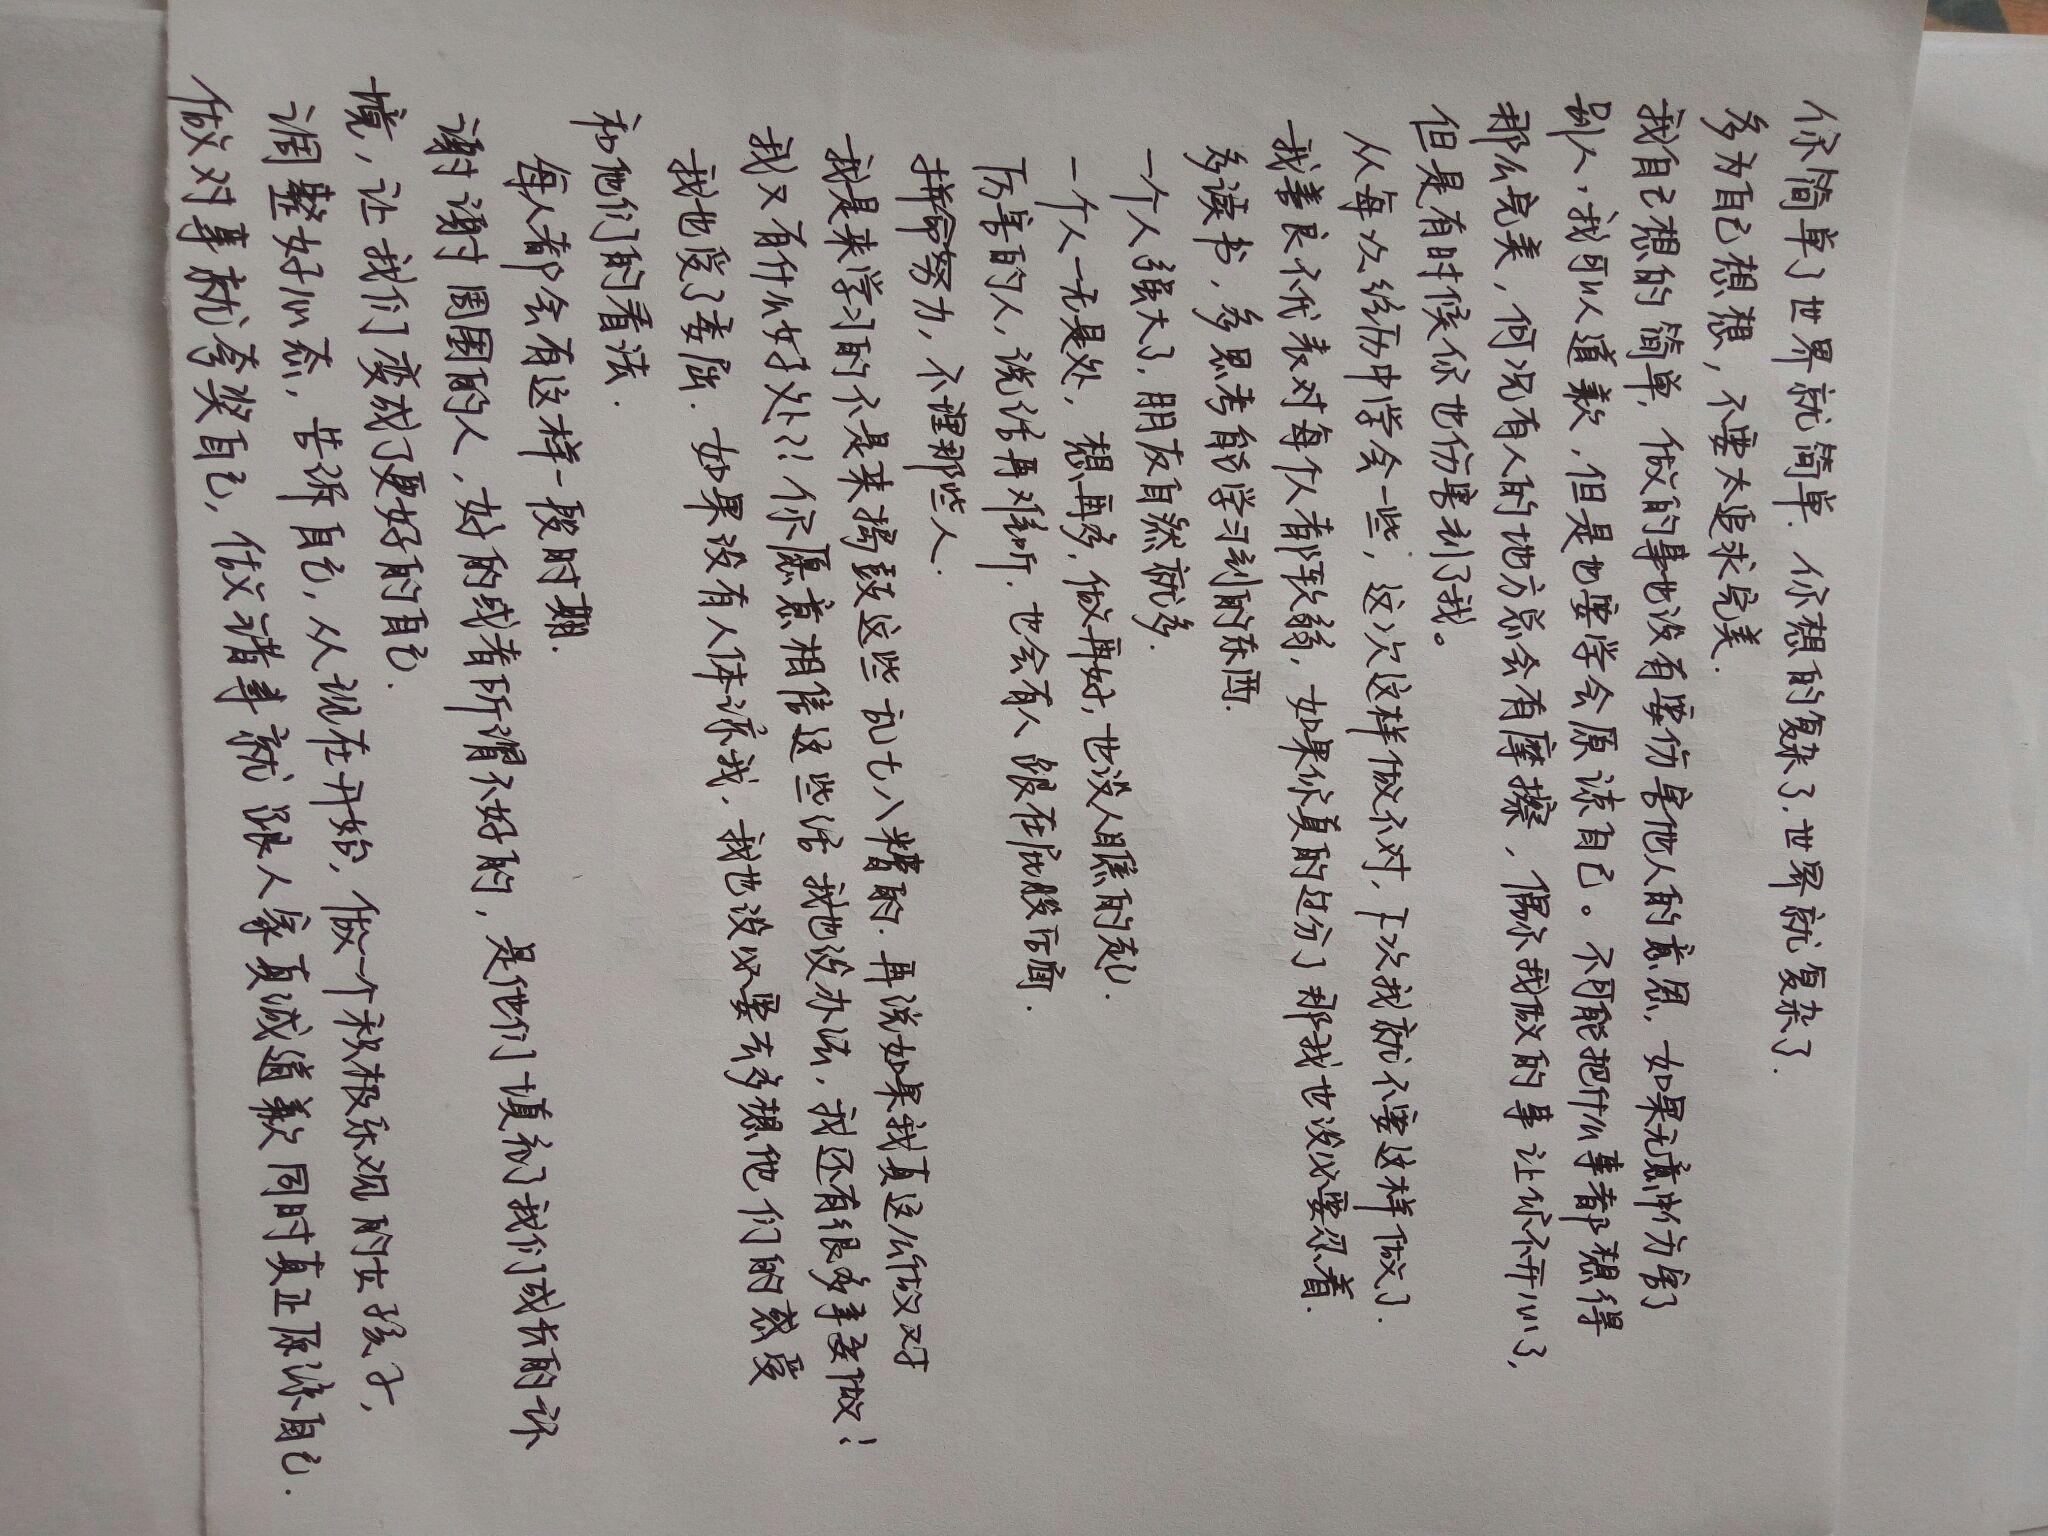 你简单了世界就简单.你想的复杂了.世界就复杂了.
多为自己想想,不要太追求完美.
我自己想的简单,做的事也没有要伤害他人的意思,如果无意中伤害了
别人,我可以道歉,但是也要学会原谅自己。不可能把什么事都想得
那么完美,何况有人的地方总会有摩擦,偶尔我做的事让你不开心了,
但是有时候你也伤害到了我。
从每次经历中学会一些,这次这样做不对,下次我就不要这样做了.
我善良不代表对每个人都软弱,如果你真的过分了那我也没必要忍着.
多读书,多思考自己学习到的东西.
一个人强大了,朋友自然就多.
一个人一无是处,想再多,做再好,也没人瞧的起.
厉害的人,说话再难听.也会有人跟在屁股后面.
拼命努力,不理那些人.
我是来学习的不是来捣鼓这些乱七八糟的.再说如果我真这么做又对
我又有什么好处??你愿意相信这些话我也没办法,我还有很多事要做!
我也受了委屈.如果没有人体谅我.我也没必要去多想他们的感受
和他们的看法.
每人都会有这样一段时期.
谢谢周围的人,好的或者所谓不好的,是他们填补了我们成长的环
境,让我们变成了更好的自己.
调整好心态,告诉自己,从现在开始,做一个积极乐观的女孩子,
做对事就夸奖自己,做错事就跟人家真诚道歉同时真正原谅自己.